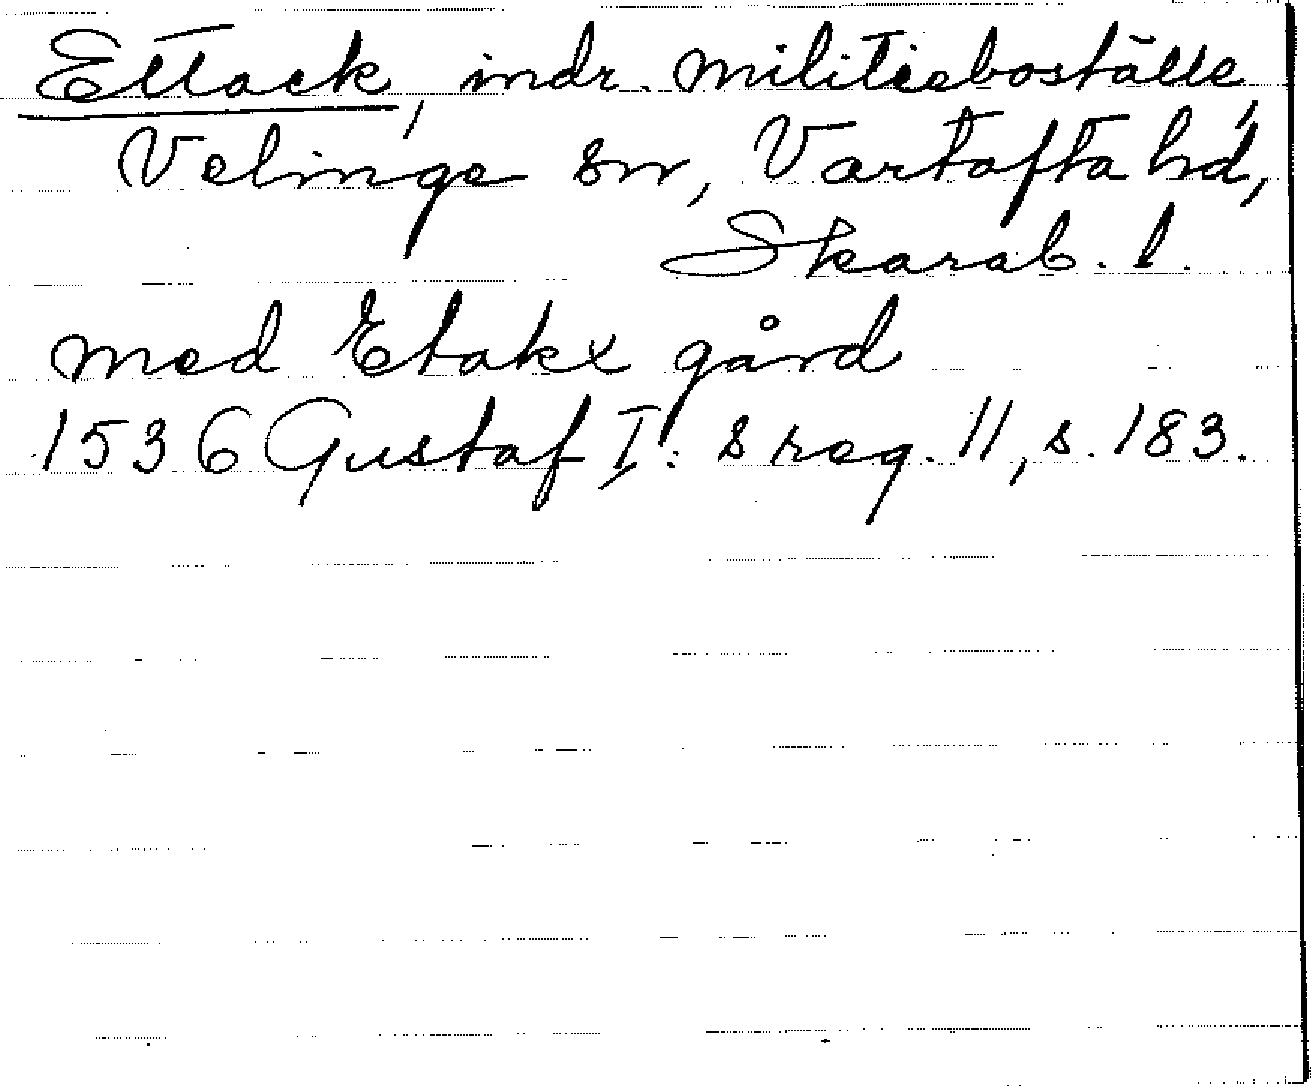 Ettack, indr. militieboställe,
Velinge sn, Vartofta hd,
Skarab. l.
med Etakx gård
1536 Gustaf I:s reg. 11, s. 183.